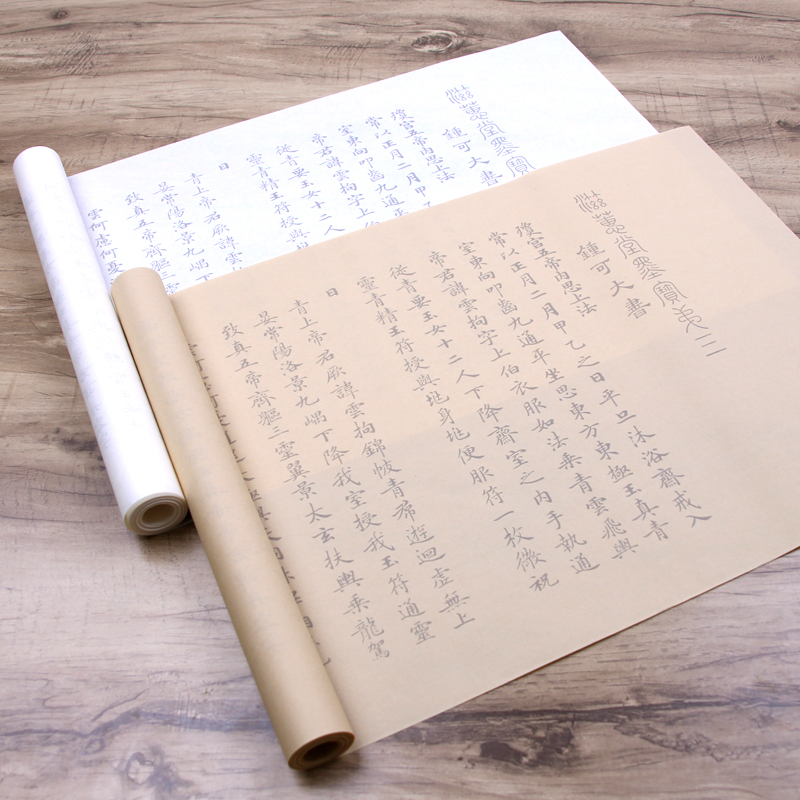 滋蕙堂墨寶
鍾可大書
瓊宮五帝內思上法
常以正月二月甲
室東向叩齒九通平
帝君諱雲拘字上
從青要玉女十二人
靈青精玉符授與
曰
青上帝君厥諱雲
晏常陽洛景九嵎下
致真五帝齊軀三
雲何慶何憂
滋蕙堂墨寶第三
鍾可大書
瓊宮五帝內思上法
常以正月二月甲乙之日平旦沐浴齋戒入
室東向叩齒九通平坐思東方東極玉真青
帝君諱雲拘字上伯衣服如法乘青雲飛輿
從青要玉女十二人下降齋室之內手執通
靈青精玉符授與兆身兆便服符一枚微祝
曰
青上帝君厥諱雲拘錦帔青帬遊迴虛無上
晏常陽洛景九嵎下降我室授我玉符通靈
致真五帝齊軀三靈翼景太玄扶輿乘龍駕